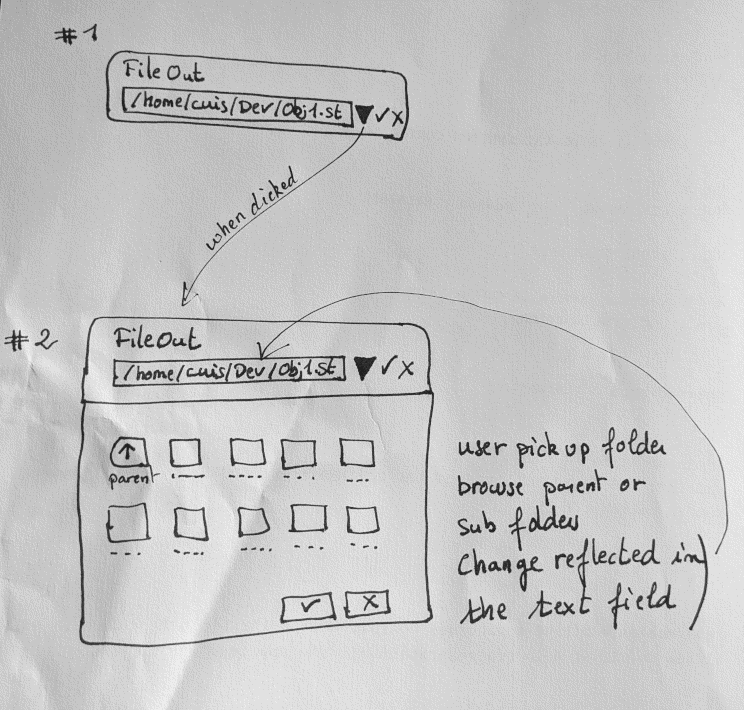 #1
File Out
/home/cuis/Dev/Obj1.st
when clicked
#2
FileOut
/home/cuis/Dev/Obj1.st
parent
user pick up folder
browse parent or
sub folder
change reflected in
the text field